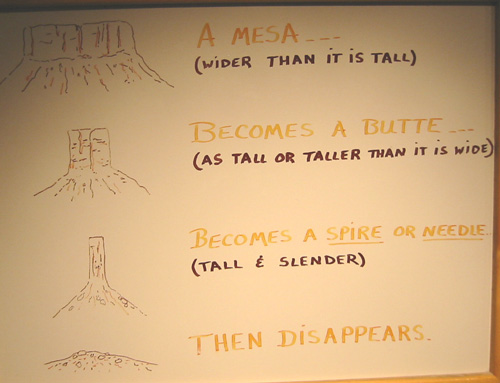 A MESA ---
(WIDER THAN IT IS TALL)
BECOMES A BUTTE ---
(AS TALL OR TALLER THAN IT IS WIDE)
BECOMES A SPIRE OR NEEDLE..
(TALL & SLENDER)
THEN DISAPPEARS.